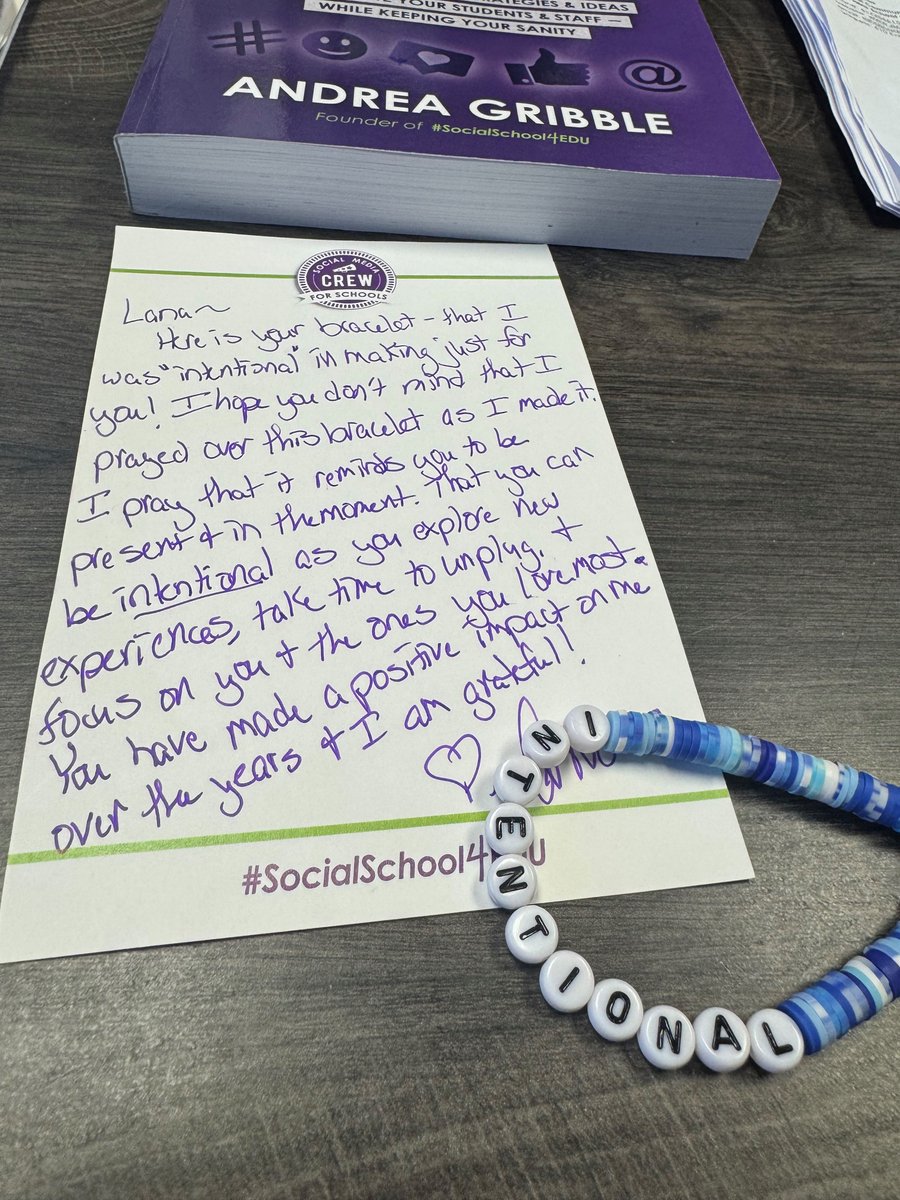 STRATEGIES & IDEAS
YOUR STUDENTS & STAFF —
WHILE KEEPING YOUR SANITY
# @
ANDREA GRIBBLE
Founder of #SocialSchool4EDU
SOCIAL MEDIA
CREW
FOR SCHOOLS
Lana~
Here is your bracelet - that I
was "intentional" in making just for
you! I hope you don't mind that I
prayed over this bracelet as I made it.
I pray that it reminds you to be
present & in the moment. That you can
be intentional as you explore new
experiences, take time to unplug, &
focus on you & the ones you love most.
You have made a positive impact on me
over the years & I am grateful!
#SocialSchool4EDU
INTENTIONAL